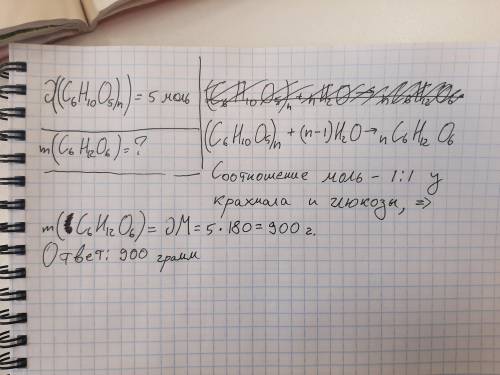 ∂((C₆H₁₀O₅)n) = 5 моль
m(C₆H₁₂O₆) = ?
(C₆H₁₀O₅)n + nH₂O → nC₆H₁₂O₆
(C₆H₁₀O₅)n + (n-1)H₂O → nC₆H₁₂O₆
Соотношение моль - 1:1 у
крахмала и глюкозы, =>
m(C₆H₁₂O₆) = ∂M = 5 · 180 = 900 г.
Ответ: 900 грамм